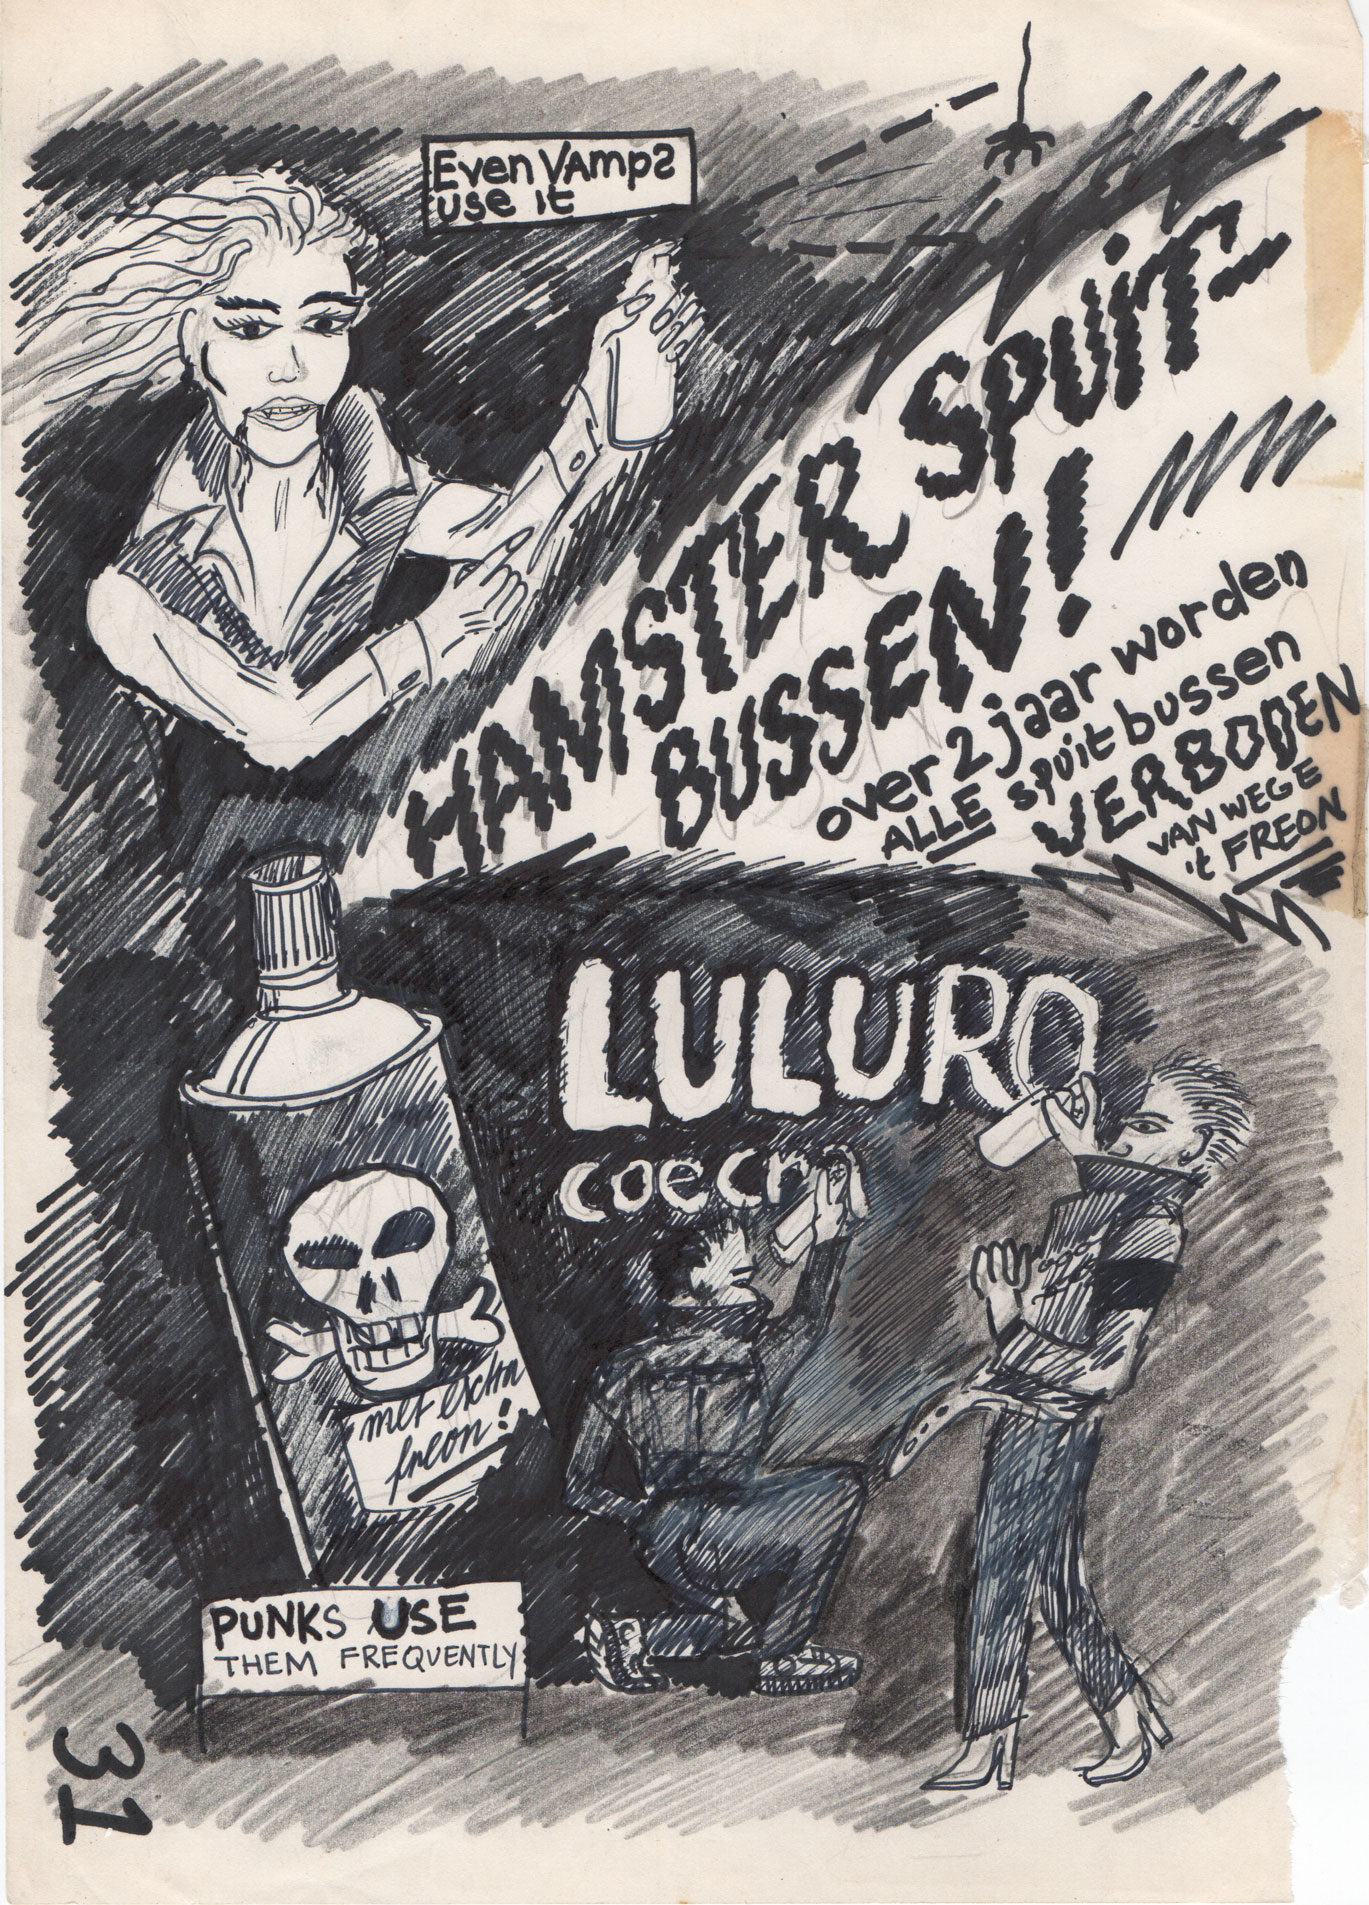 Even VAmps
use it
HAMSTER SPUIT-
BUSSEN!
over 2 jaar worden
ALLE spuitbussen
VERBODEN
VAN WEGE
't FREON
LULURO
coecr
met extra
freon!
PUNKS USE
THEM FREQUENTLY
31